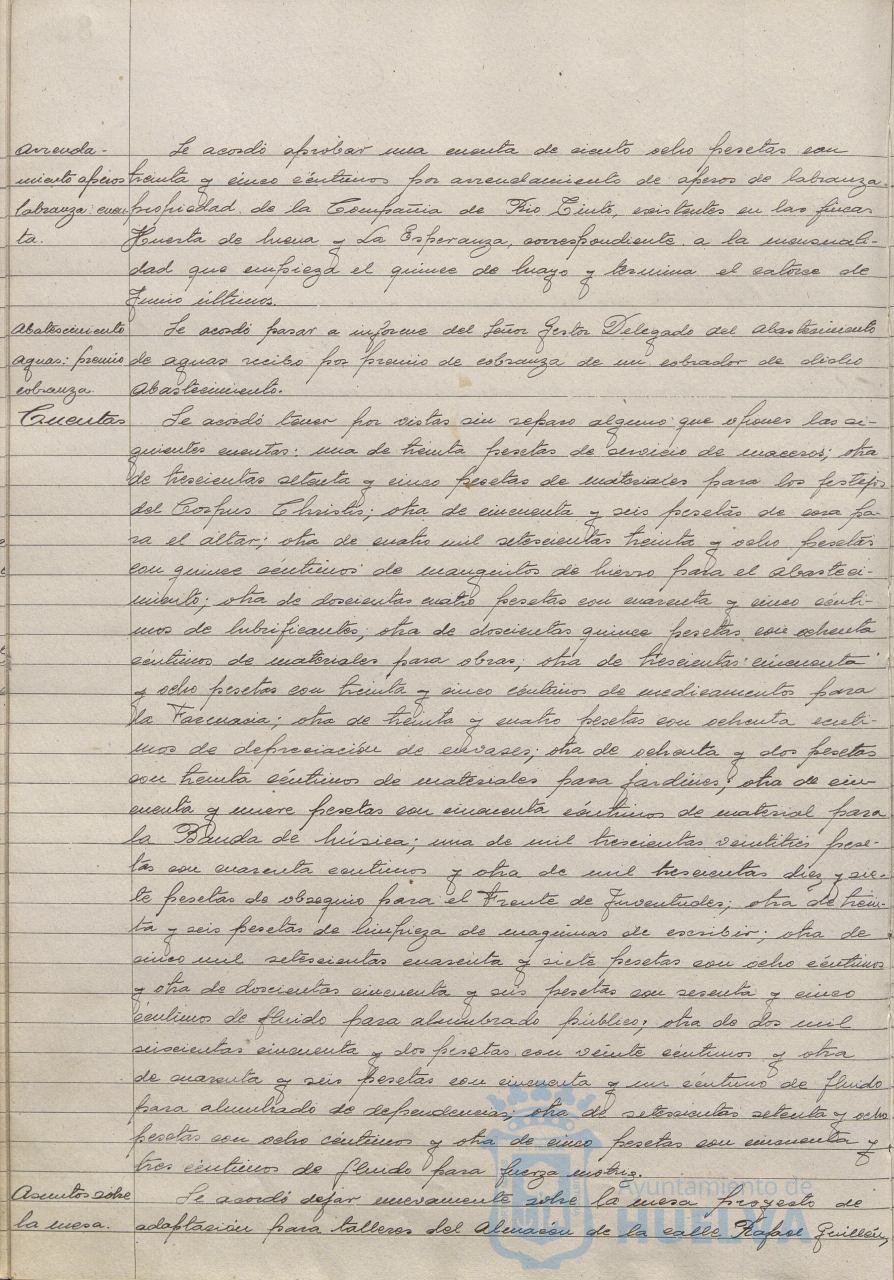 Arrenda-
miento aperos
labranza: cuen-
ta.
Se acordó aprobar una cuenta de ciento ocho pesetas con
treinta y cinco céntimos por arrendamiento de aperos de labranza
propiedad de la Compañia de Rio Tinto, existentes en las fincas
Huerta de Mena y La Esperanza, correspondiente a la mensuali-
dad que empieza el quince de Mayo y termina el catorce de
Junio últimos.
Abastecimiento
aguas: premio
cobranza.
Se acordó pasar a informe del Señor Gestor Delegado del Abastecimiento
de aguas recibo por premio de cobranza de un cobrador de dicho
Abastecimiento.
Cuentas
Se acordó tener por vistas sin reparo alguno que oponer las si-
guientes cuentas: una de treinta pesetas de servicio de maceros; otra
de trescientas setenta y cinco pesetas de materiales para los festejos
del Corpus Christi; otra de cincuenta y seis pesetas de cera pa-
ra el altar; otra de cuatro mil setescientas treinta y ocho pesetas
con quince céntimos de manguitos de hierro para el abasteci-
miento; otra de doscientas cuatro pesetas con cuarenta y cinco cénti-
mos de lubrificantes; otra de doscientas quince pesetas con ochenta
céntimos de materiales para obras; otra de trescientas cincuenta
y ocho pesetas con treinta y cinco céntimos de medicamentos para
la Farmacia; otra de treinta y cuatro pesetas con ochenta centi-
mos de depreciación de envases; otra de ochenta y dos pesetas
con treinta céntimos de materiales para jardines; otra de cin-
cuenta y nueve pesetas con cincuenta céntimos de material para
la Banda de Música; una de mil trescientas veintitrés pese-
tas con cuarenta centimos y otra de mil trescientas diez y sie-
te pesetas de obsequio para el Frente de Juventudes; otra de trein-
ta y seis pesetas de limpieza de maquinas de escribir; otra de
cinco mil setescientas cuarenta y siete pesetas con ocho céntimos
y otra de doscientas cincuenta y seis pesetas con sesenta y cinco
céntimos de fluido para alumbrado público; otra de dos mil
seiscientas cincuenta y dos pesetas con veinte céntimos y otra
de cuarenta y seis pesetas con cincuenta y un céntimo de fluido
para alumbrado de dependencias; otra de setescientas setenta y ocho
pesetas con ocho céntimos y otra de cinco pesetas con cincuenta y
tres céntimos de fluido para fuerza motriz.
Asuntos sobre
la mesa.
Se acordó dejar nuevamente sobre la mesa proyecto de
adaptación para talleres del Almacén de la calle Rafael Guillén,
Ayuntamiento de
HUELVA